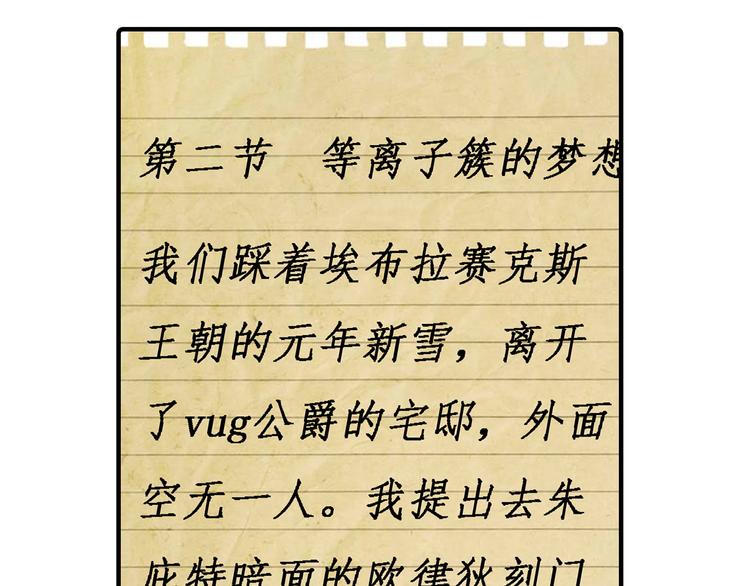 第二节　等离子簇的梦想
我们踩着埃布拉赛克斯
王朝的元年新雪，离开
了vug公爵的宅邸，外面
空无一人。我提出去朱
庇特暗面的欧律狄刻门